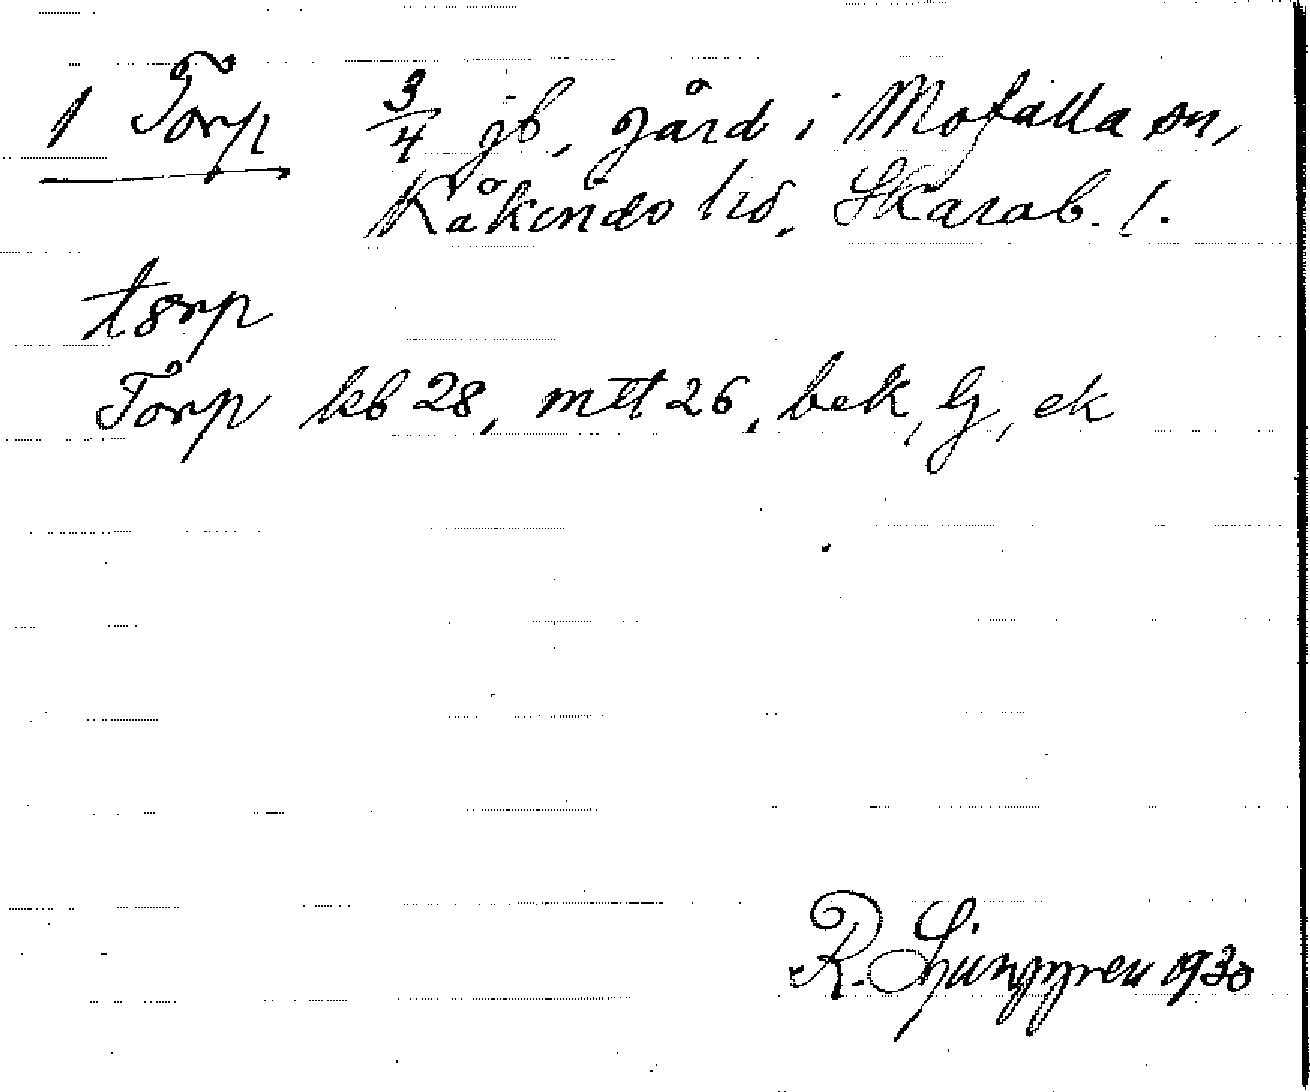 1 Torp 3/4 jb, gård i Mofalla sn,
Kåkinds hd, Skarab. l.
tɔrp
Tårp kb 28, mtl 26, bek, lj, ek
R. Ljunggren 1930